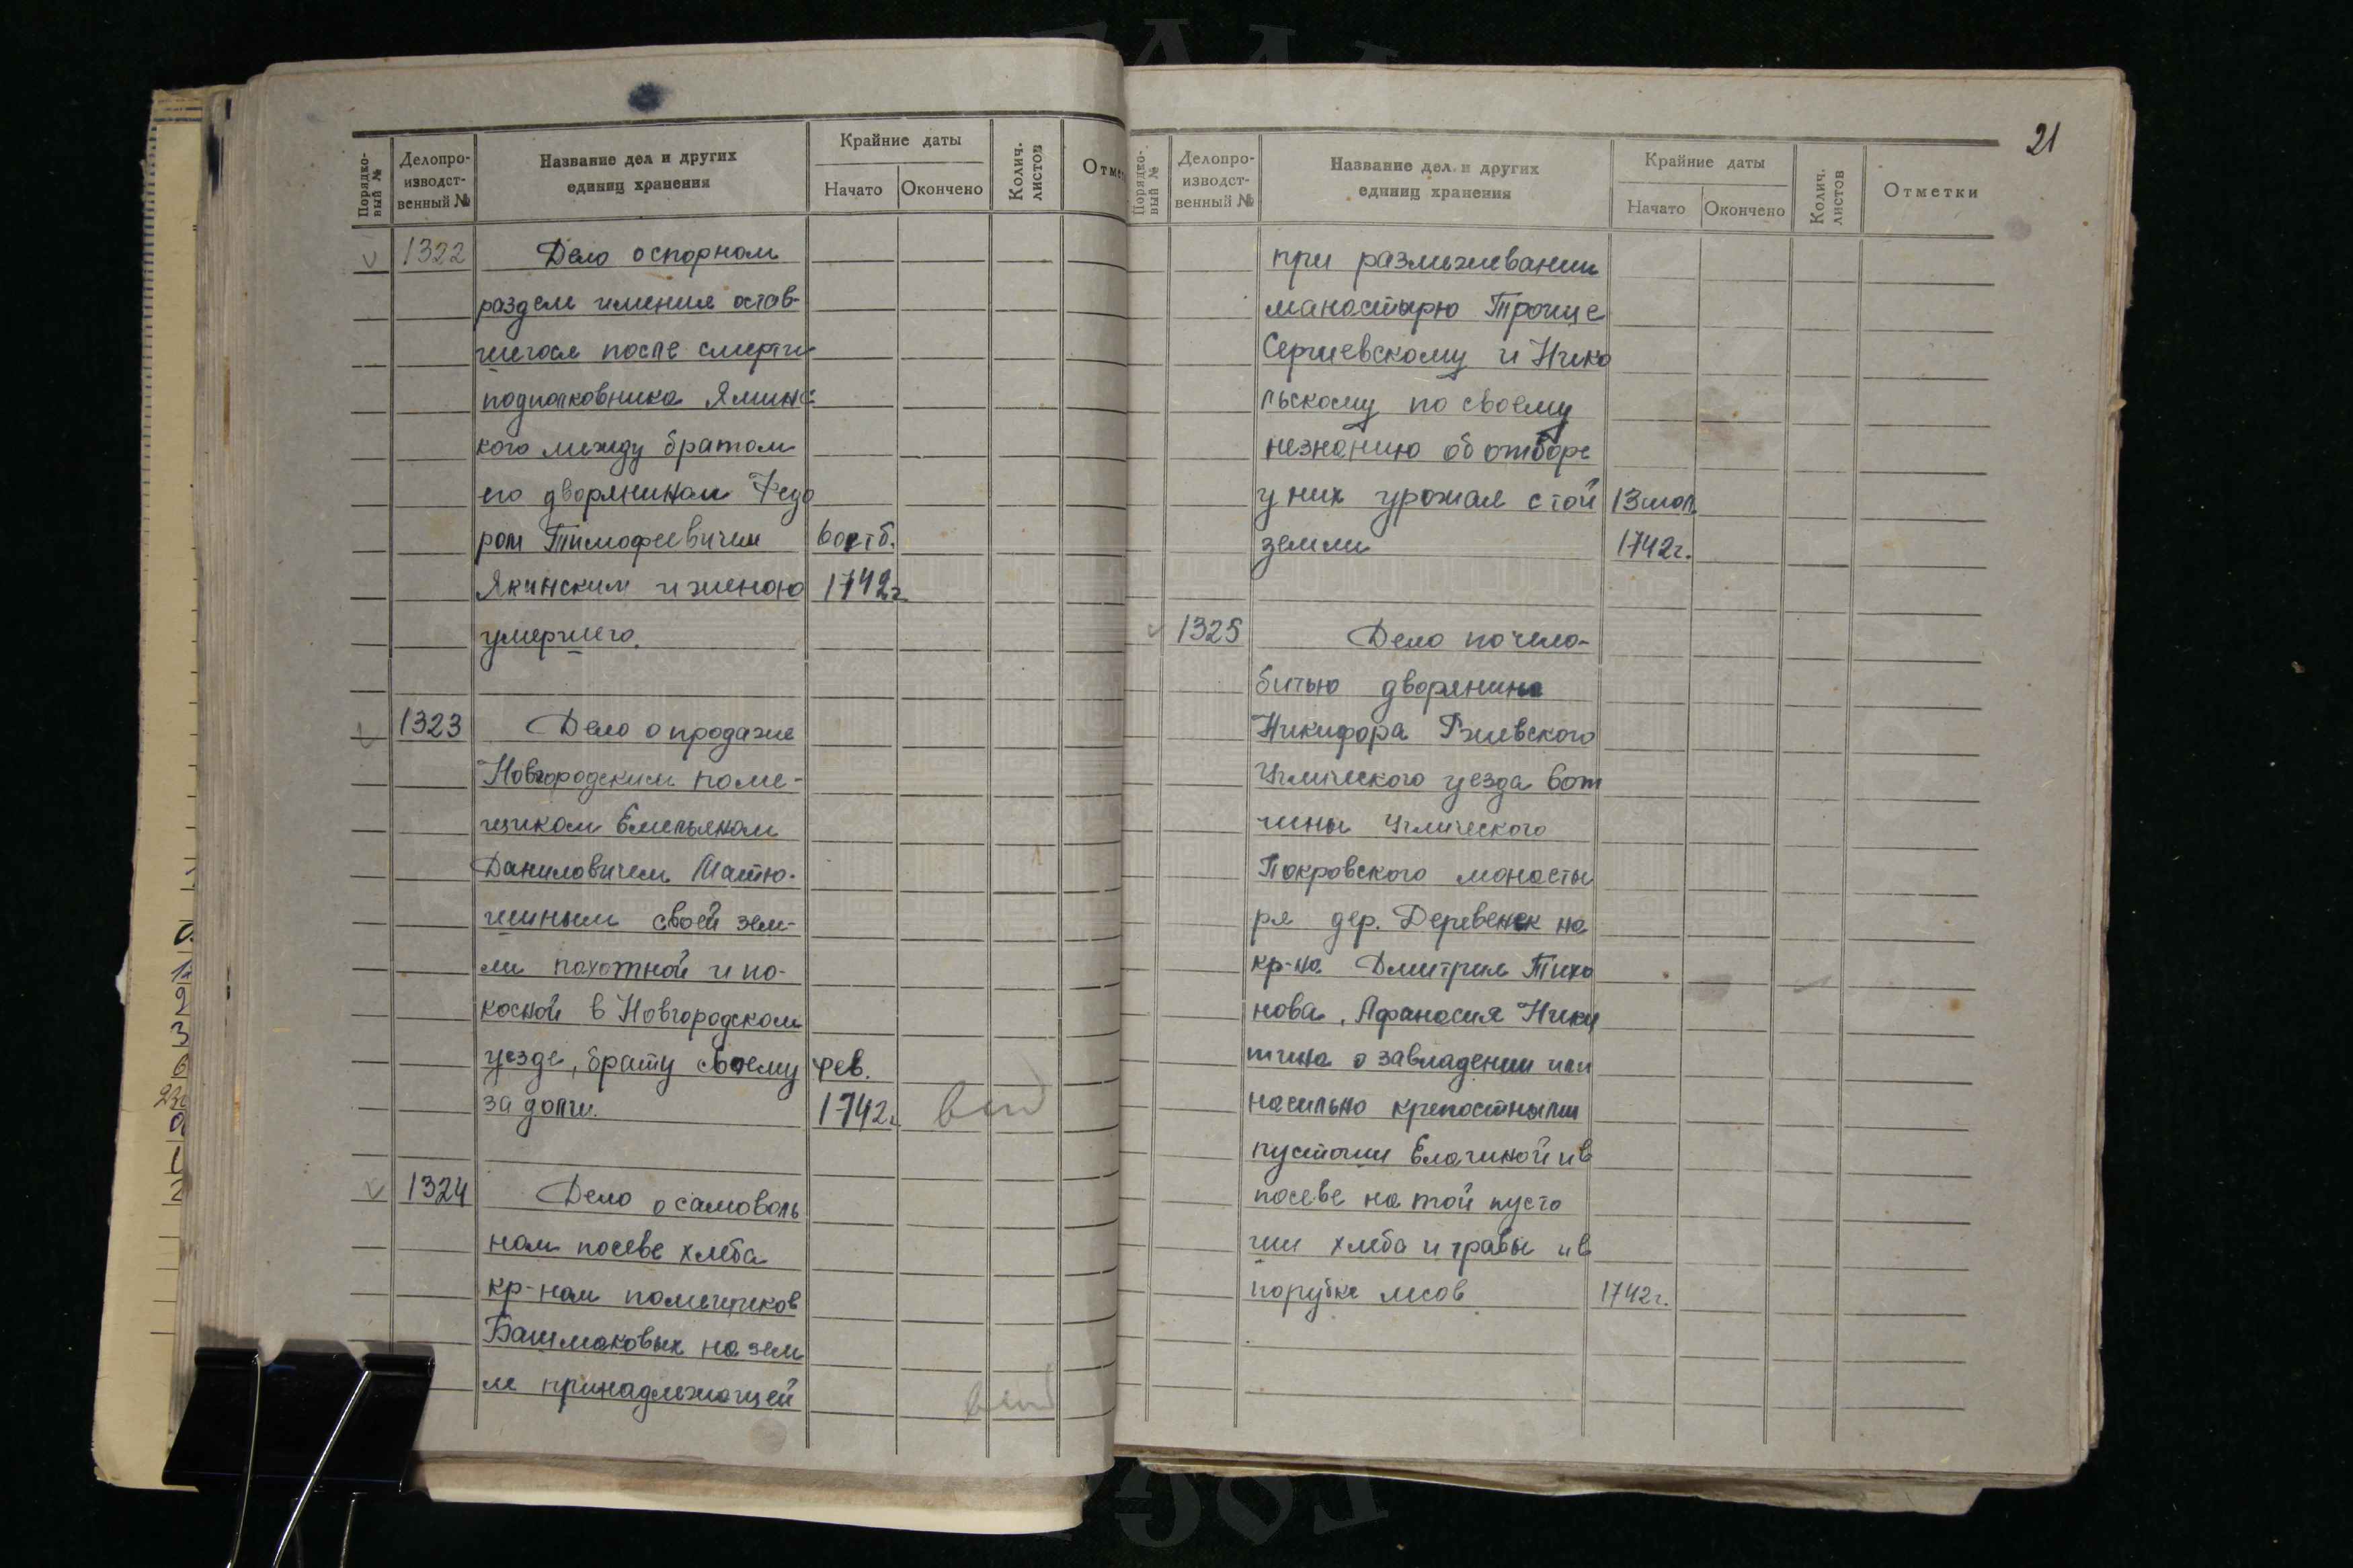 Порядко-
вый №
Делопро-
изводст-
венный №
Название дел и других
единиц хранения
Крайние даты
Начато
Окончено
Колич.
листов
Отмет
1322
Дело о спорном
раздем имения остав-
шегося после смерти
подполковника Яминс
кого между братом
его дворянином Федо
ром Тимофеевичем
Якинским и женою
1742г
умершего.
1323
Дело о продаже
Новгородским поме-
щиком Емельяном
Даниловичем Матю-
шиным своей зем-
ли пахотной и по-
косной в Новгородском
уезде, брату своему
фев.
за долги.
1742г.
1324
Дело о самоволь
ном посеве хлеба
кр-нам помещиков
Башмаковых на зем
ле принадлежащей
21
Порядко-
вый №
Делопро-
изводст-
венный №
Название дел и других
единиц хранения
Крайние даты
Начато
Окончено
Колич.
листов
Отметки
при размежевании
манастырю Троице
Сергиевскому и Нико
льскому по своему
незнанию об отборе
у них урожая с той
земли
1742г.
1325
Дело по чело-
битью дворянина
Никифора Ржевского
Углического уезда вот
чины Углического
Покровского монасты
ря дер. Деревенек на
кр-на Дмитрия Тихо
нова, Афанасия Ники
тина о завладении ими
насильно крепостными
пустоши Елагиной и в
посеве на той пусто
ши хлеба и травы и в
порубке лесов
1742г.